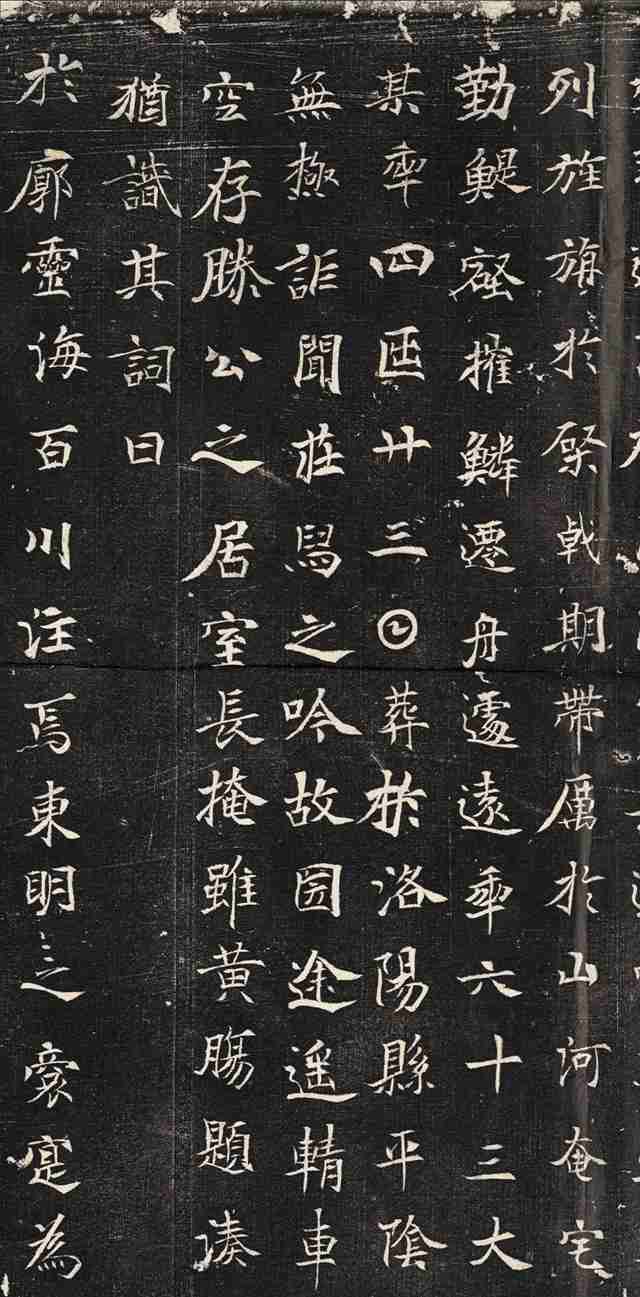 列旌旗於棨戟期帶厲於山河奄宅
勤鯷壑摧鱗遷舟遽遠年六十三大
某年四𠥱廿三𡆠葬於洛陽縣平陰
無極詎聞莊舄之吟故圀途遙輤車
空存滕公之居室長掩雖黃腸題湊
猶識其詞曰
於廓靈海百川注焉東明之裔寔為